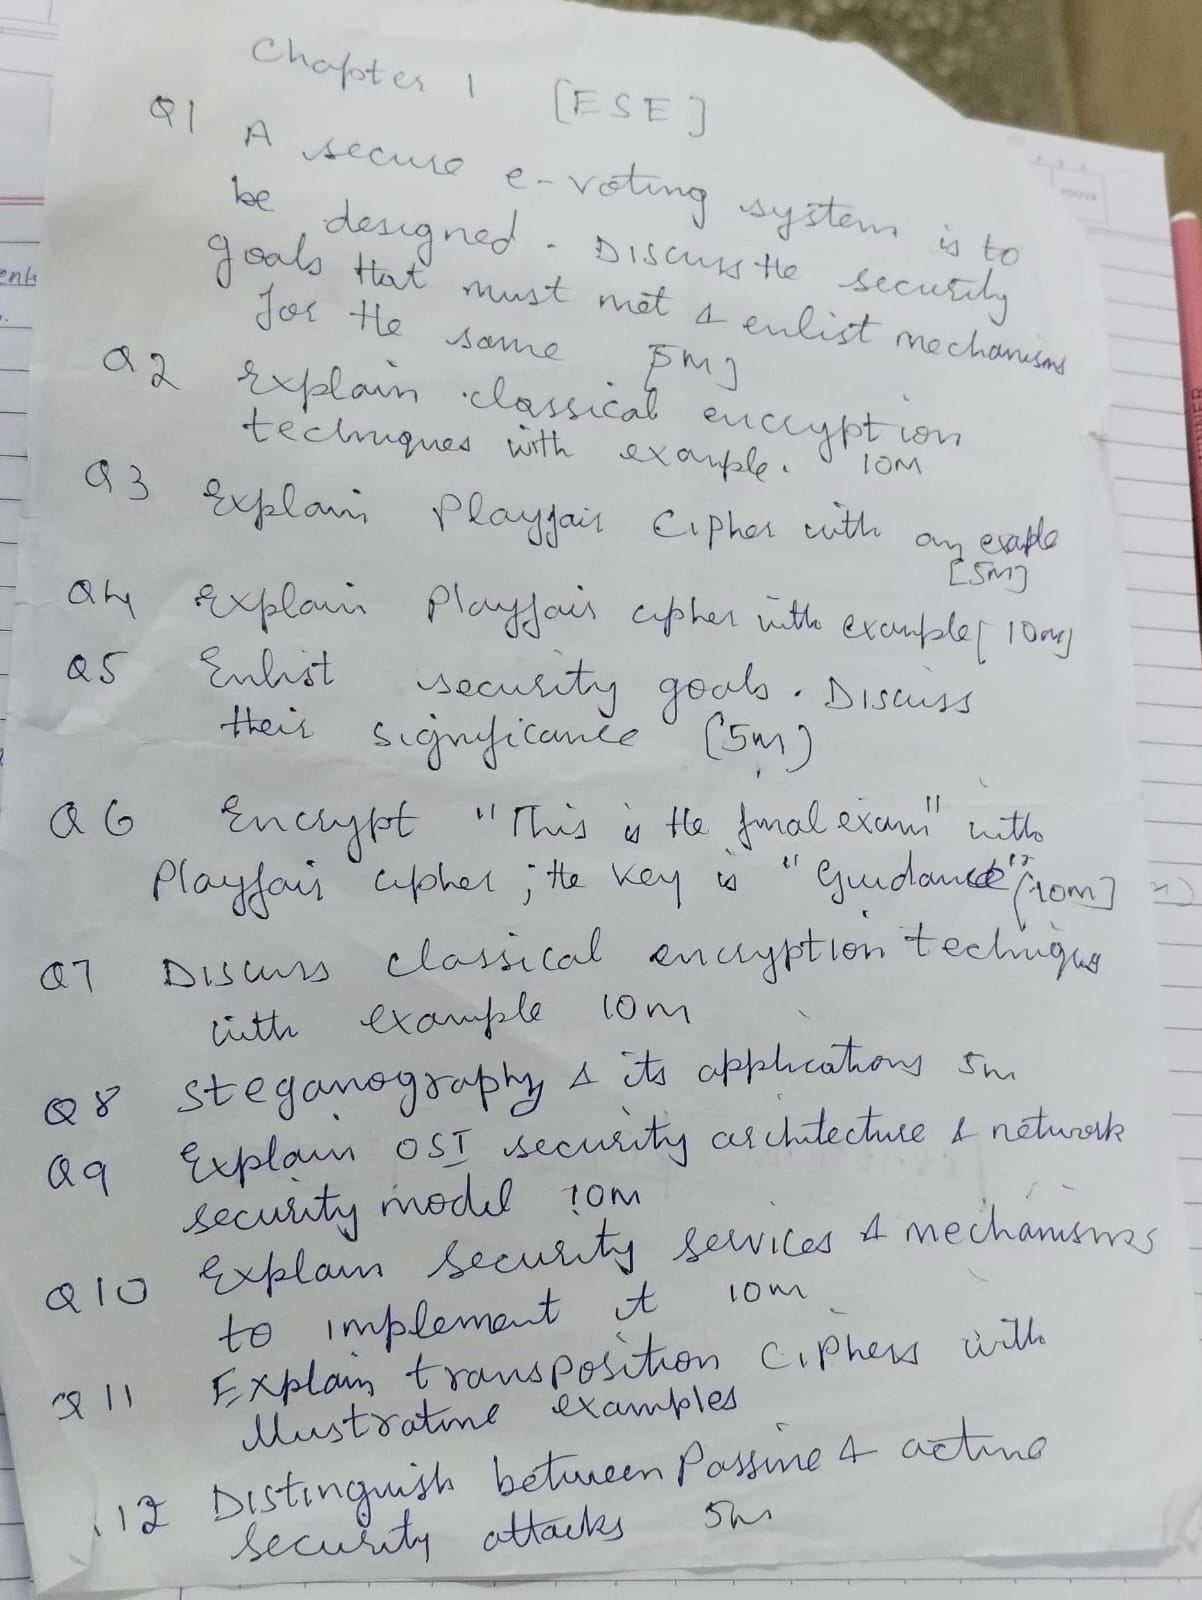 Chapter 1 [ESE]
Q1 A secure e-voting system is to
be designed. Discuss the security
goals that must met & enlist mechanisms
for the same 5M]
Q2 Explain classical encryption
techniques with example. 10M
Q3 Explain Playfair Cipher with an
[5M]
Q4 Explain Playfair cipher with example [10M]
Q5 Enlist security goals. Discuss
their significance (5M)
Q6 Encrypt "This is the final exam" with
Playfair cipher; the key is "Guidance" [10M]
Q7 Discuss classical encryption technique
with example 10M
Q8 Steganography & its applications 5M
Q9 Explain OSI security architecture & network
security model 10M
Q10 Explain security services & mechanisms
to implement it 10M
Q11 Explain transposition Ciphers with
illustrative examples
12 Distinguish between Passive & active
security attacks 5M